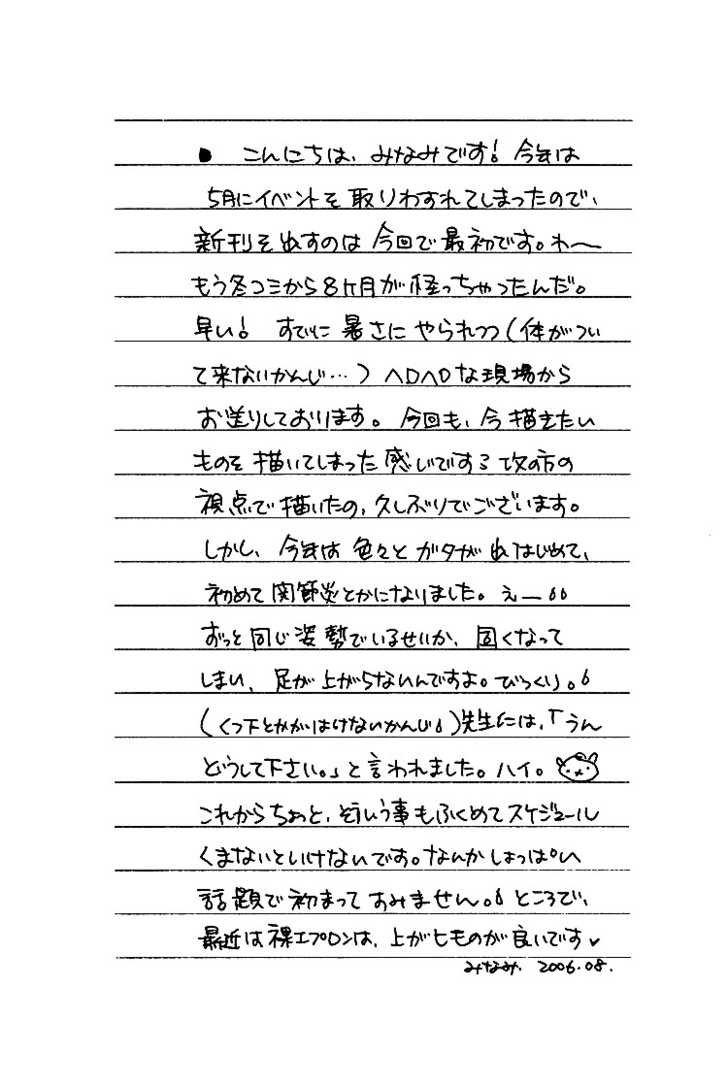 ● こんにちは、みなみです! 今年は
5月にイベントを取りわすれてしまったので、
新刊を出すのは今回で最初です。わ〜
もう冬コミから8ヶ月が経っちゃったんだ。
早い! すでに暑さにやられつつ(体がつい
て来ないかんじ…)ヘロヘロな現場から
お送りしております。今回も、今描きたい
ものを描いてしまった感じです 攻め方の
視点で描いたの、久しぶりでございます。
しかし、今年は色々とガタが出はじめて、
初めて関節炎とかになりました。えー
ずっと同じ姿勢でいるせいか、固くなって
しまい、足が上がらないんですよ。びっくり。
(くつ下とかがはけないかんじ)先生には、「うん
どうして下さい。」と言われました。ハイ。
これからちょっと、そういう事もふくめてスケジュール
くまないといけないです。なんかしょっぱい
話題で初まってすみません。ところで、
最近は裸エプロンは、上がヒモのが良いです♥
みなみ. 2006.08.